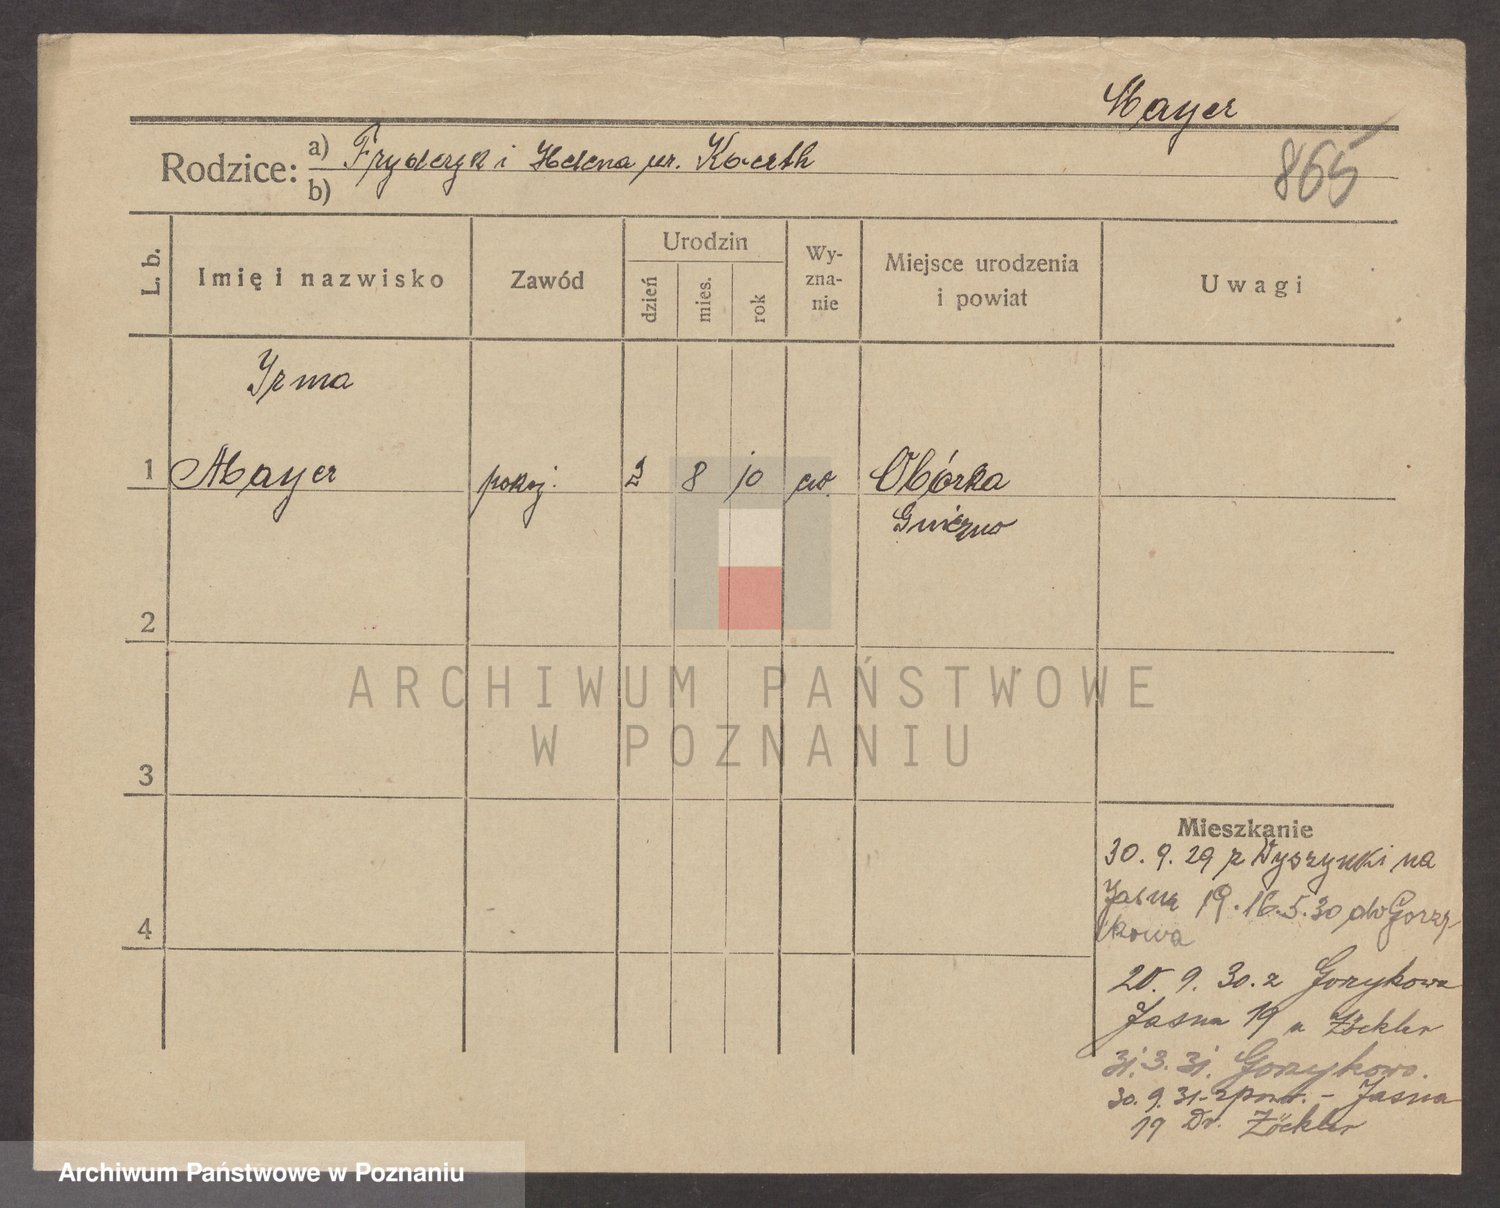 Mayer
865
Rodzice: a) Fryderyk i Helena ur. Koerth
b)
L. b.
Imię i nazwisko
Zawód
Urodzin
dzień
mies.
rok
Wy-
zna-
nie
Miejsce urodzenia
i powiat
Uwagi
Irma
1 Mayer pokoj. 2 8 10 ew. Obórka
Gniezno
2
3
4
Mieszkanie
30. 9. 29 z Wyszynki na
Jasna 19. 16.5.30 do Gorzy-
kowa
20. 9. 30. z Gorzykowa
Jasna 19 u Zöckler
31. 3. 31. Gorzykowo.
30. 9. 31 - zpow. - Jasna
19 Dr. Zöckler
ARCHIWUM PAŃSTWOWE
W POZNANIU
Archiwum Państwowe w Poznaniu